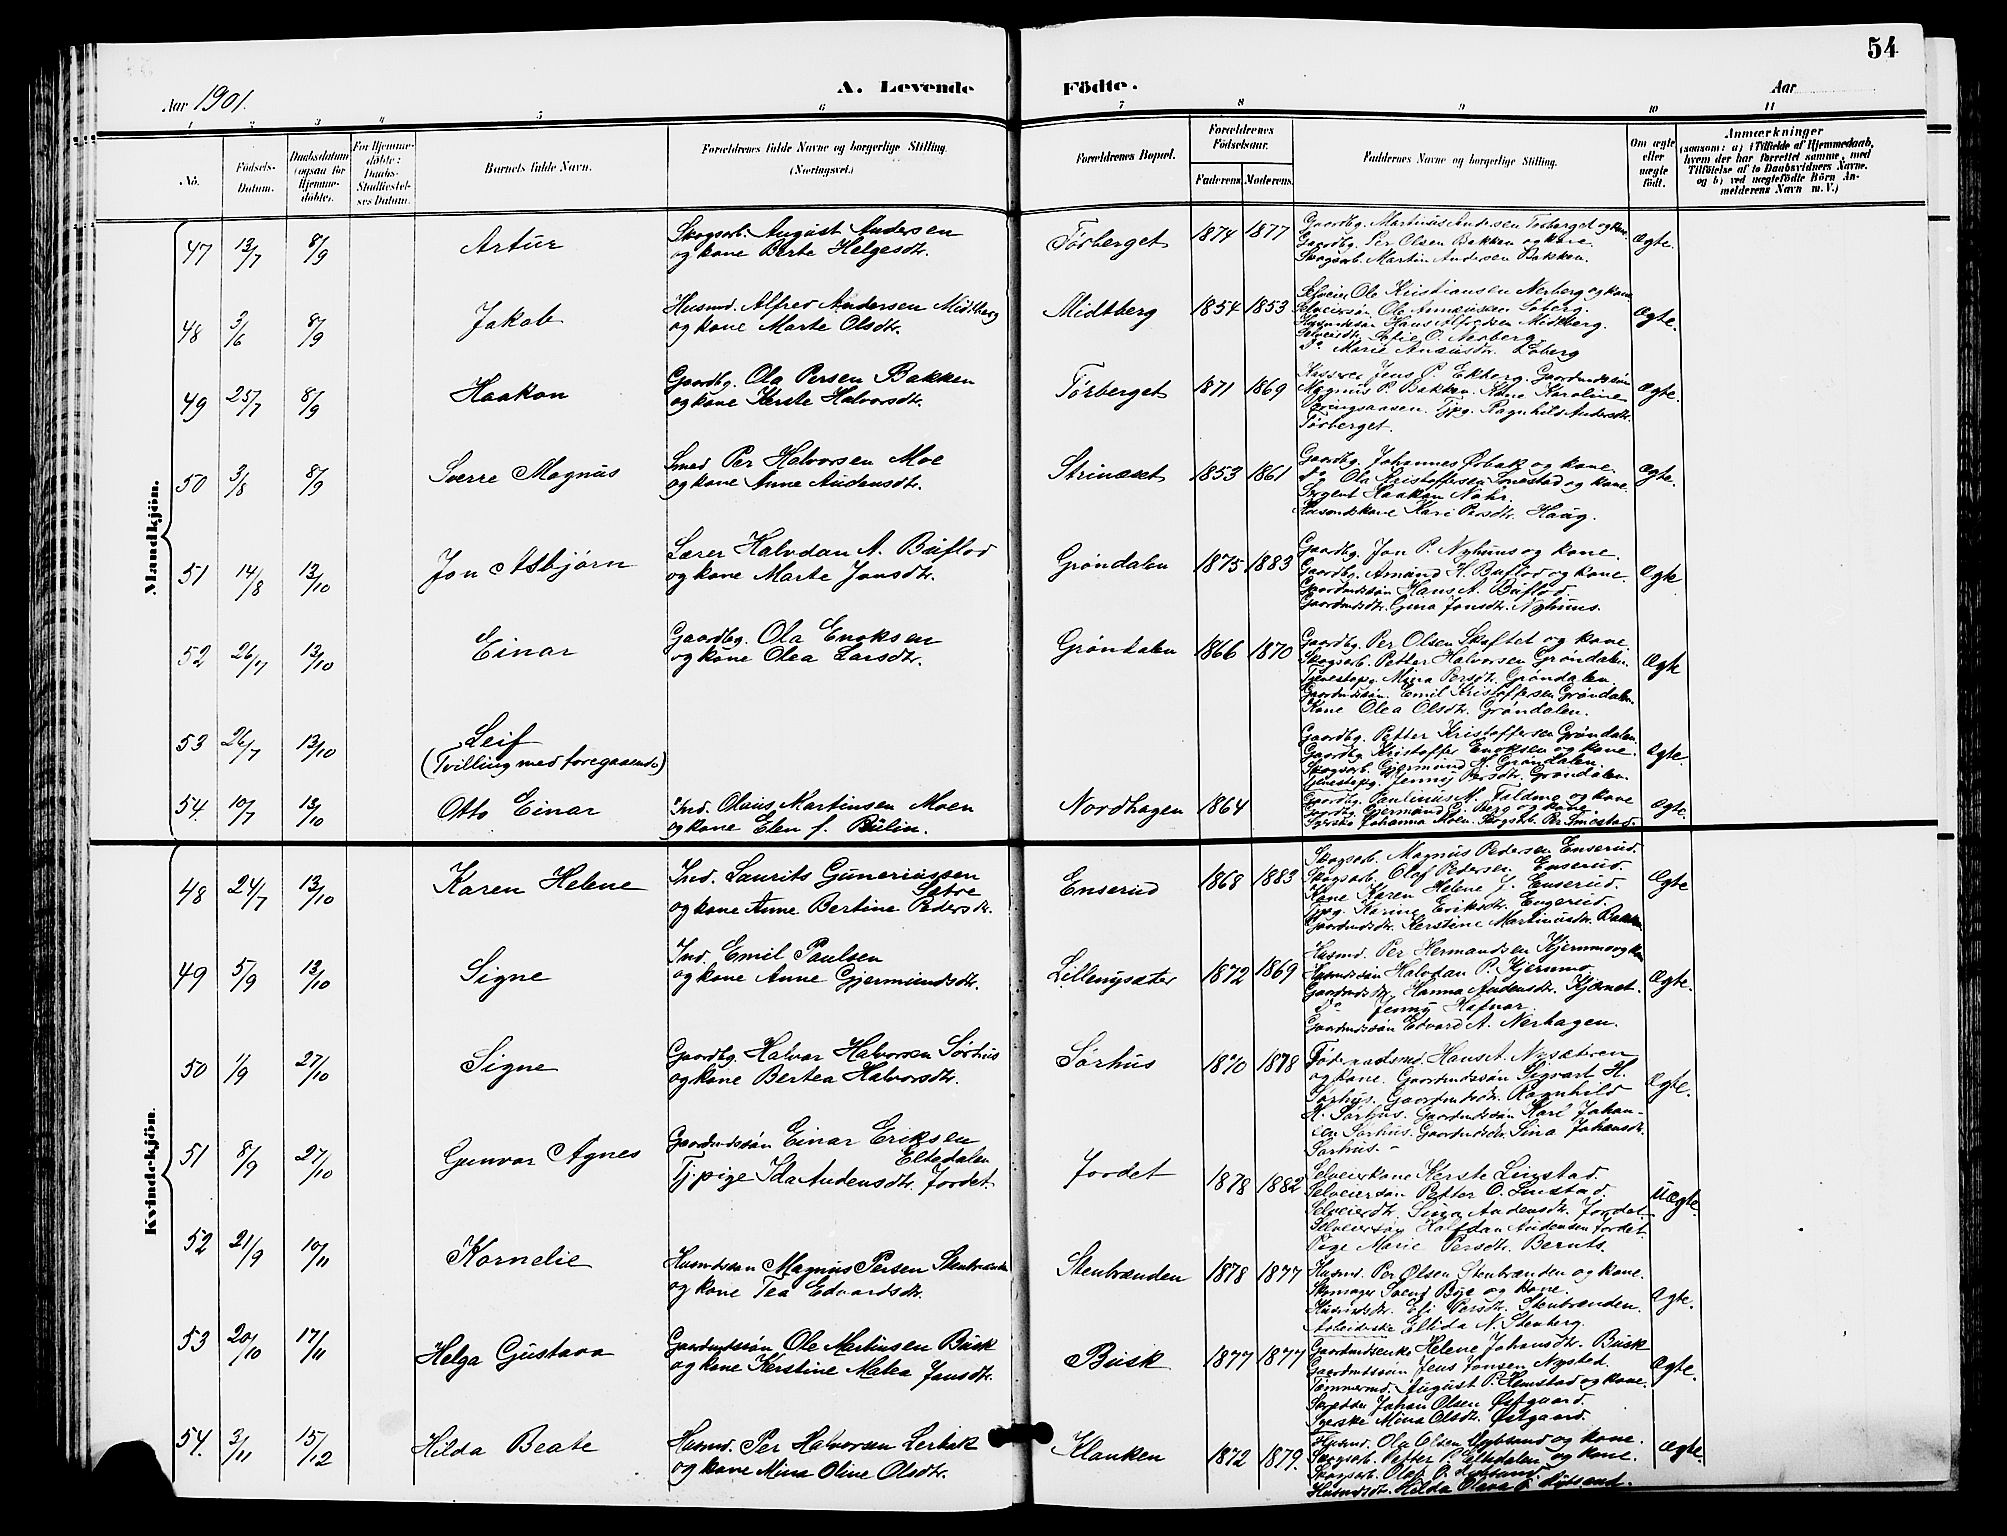 54
Aar 1901.
A. Levende
Födte.
Aar
1 2 3 4 5 6 7 8 9 10 11
No.
Födsels-
Datum.
Daabsdatum
(ogsaa for
Hjemme-
döbte).
For Hjemme-
döbte:
Daabs-
Stadfæstel-
ses Datum.
Barnets fulde Navn.
Forældrenes fulde Navne og borgerlige Stilling.
(Næringsvei.)
Forældrenes Bopæl.
Forældrenes
Födselsaar.
Faderens. Moderens.
Faddernes Navne og borgerlige Stilling.
Om ægte
eller
uægte
födt.
Anmærkninger
(saasom: a) i Tilfælde af Hjemmedaab,
hvem der har forrettet samme, med
Tilföielse af to Daabsvidners Navne.
og b) ved uægtefödte Börn An-
melderens Navn m. V.)
Mandkjön.
47 13/7 8/9 Artur
Skogsarb. August Andersen
og kone Berte Helgesdtr.
Törberget 1874 1877
Gaardbg. Martinus Andersen Törberget og kone
Gaardbg. Per Olsen Bakken og kone.
Skogsarb. Martin Andersen Bakken.
Ægte.
48 3/6 8/9 Jakob
Husmd. Alfred Andersen Midtberg
og kone Marte Olsdtr.
Midtberg 1854 1853
Selveier Ole Kristiansen Nerberg og kone
Selveiersön Ole Löberg.
Husmdssön Hans Alfredsen Midtberg.
Selveierdtr. Sofie O. Nerberg
Do Marie Löberg
Ægte.
49 25/7 8/9 Haakon
Gaardbg. Ola Persen Bakken
og kone Kerste Halvorsdtr.
Törberget 1871 1869
Jens P. Ekberg. Gaardmdssön
Magnus P. Bakken. Kone Karoline
Tjpg. Ragnhild Andersdtr.
Törberget.
Ægte.
50 3/8 8/9 Sverre Magnus
Smed Per Halvorsen Moe
og kone Anne Audensdtr.
1853 1861
Gaardbg. Johannes Örbak og kone.
Do Ola Kristoffersen Smestad og kone.
Sergent Haakon Nohr.
Husmdskone Kari Persdtr. Haug.
Ægte.
51 14/8 13/10 Jon Asbjörn
Lærer Halvdan A. Buflod
og kone Marte Jonsdtr.
Gröndalen 1875 1883
Gaardbg. Jon P. Nyhuus og kone.
Gaardbg. Amund H. Buflod og kone.
Gaardmdssön Hans A. Buflod.
Gaardmdsdtr. Gina Jonsdtr. Nyhuus.
Ægte
52 26/7 13/10 Einar
Gaardbg. Ola Enoksen
og kone Olea Larsdtr.
Gröndalen 1866 1870
Gaardbg. Per Olsen Skaftet og kone.
Skogsarb. Petter Halvorsen Gröndalen.
Tjenestepg. Mina Persdtr. Gröndalen.
Gaardmdssön. Emil Kristoffersen Gröndalen.
Kone Olea Olsdtr. Gröndalen.
Ægte
53 26/7 13/10 Leif
(Tvilling med foregaaende)
Gaardbg. Petter Kristoffersen Gröndalen
Gaardbg. Kristoffer Enoksen og kone.
Skogsarb. Gjermund H. Gröndalen.
Tjenestepg. Jenny Persdtr. Gröndalen.
Ægte.
54. 10/7 13/10 Otto Einar
Ind. Olaus Martinsen Moen
og kone Elen J. Bülin.
Nordhagen 1864
Gaardbg. M. Faldmo og kone
Gaardbg. Gjermund G. Berg og kone.
Syerske Johanna Moen. Skogsarb. Per Smestad.
Ægte.
Kvindekjön.
48 24/7 13/10 Karen Helene
Ind. Laurits Guneriussen
Sætre
og kone Anne Bertine Pedersdtr.
Enserud 1868 1883
Skogsarb. Magnus Pedersen Enserud.
Skogsarb. Olaf Pedersen Enserud.
Kone Karen Helene J. Enserud.
Tjpg. Karine Eriksdtr. Engerud.
Gaardmdsdtr. Kerstine Martinusdtr. Bakken
Ægte
49 5/9 13/10 Signe
Ind. Emil Paulsen
og kone Anne Gjermundsdtr.
Lillenysæter 1872 1869
Husmd. Per Hermandsen Kjernmo og kone
Husmdssön Halvdan P. Kjernmo.
Gaardmdsdtr. Hanna Audensdtr. Kjernet.
Do Jenny Hafnor.
Gaardmdssön Edvard A. Nerhagen.
Ægte.
50 1/9 27/10 Signe
Gaardbg. Halvor Halvorsen Sörhus
og kone Bertea Halvorsdtr.
Sörhus 1870 1878
Föderaadsmd. Hans A. Nysæteren
og kone. Gaardmdssön Sigvart H.
Sörhus. Gaardmdsdtr. Ragnhild
H. Sörhus. Gaardmdssön Karl Johan-
sen Sörhus. Gaardmdsdtr. Sina Johansdtr.
Sörhus.
Ægte.
51 8/9 27/10 Gunvor Agnes
Gaardmdssön Einar Eriksen
Eltedalen
Tj.pige Ida Audensdtr. Jordet.
Jordet 1878 1882
Selveierkone Kerste Linstad.
Selveiersön Petter O. Linstad.
Selveierdtr. Sina Audensdtr. Jordet.
Selveiersön Halfdan Audensen Jordet.
Pige Marie Persdtr. Beruts.
Uægte.
52 21/9 10/11 Kornelie
Husmdssön Magnus Persen Stenbrænden
og kone Tea Edvardsdtr.
Stenbrænden 1878 1877
Husmd. Per Olsen Stenbrænden og kone.
Skomager Svend Bye og kone.
Husmdsdtr. Eli Persdtr. Stenbrænden.
Arbeiderske Ellida N. Stenberg.
Ægte.
53 20/10 17/11 Helga Gustava
Gaardmdssön Ole Martinsen Busk
og kone Kerstine Matea Jonsdtr.
Busk 1877 1877
Gaardmdsenke Helene Johansdtr. Busk
Gaardmdssön Jens Jonsen Nysted.
Tömmermd. August P. Hemstad og kone.
Skrædder Johan Olsen Östgaard.
Syerske Mina Olsdtr. Östgaard.
Ægte.
54. 3/11 15/12 Hilda Beate
Husmd. Per Halvorsen Lerbæk
og kone Mina Oline Olsdtr.
Klanken 1872 1879.
Husmd. Ola Olsen Nybsund og kone.
Skogsarb. Petter P. Eltedalen og kone.
Skogsarb. Olaf O. Nybsund.
Husmdsdtr. Hilda Olava O. Nybsund.
Ægte